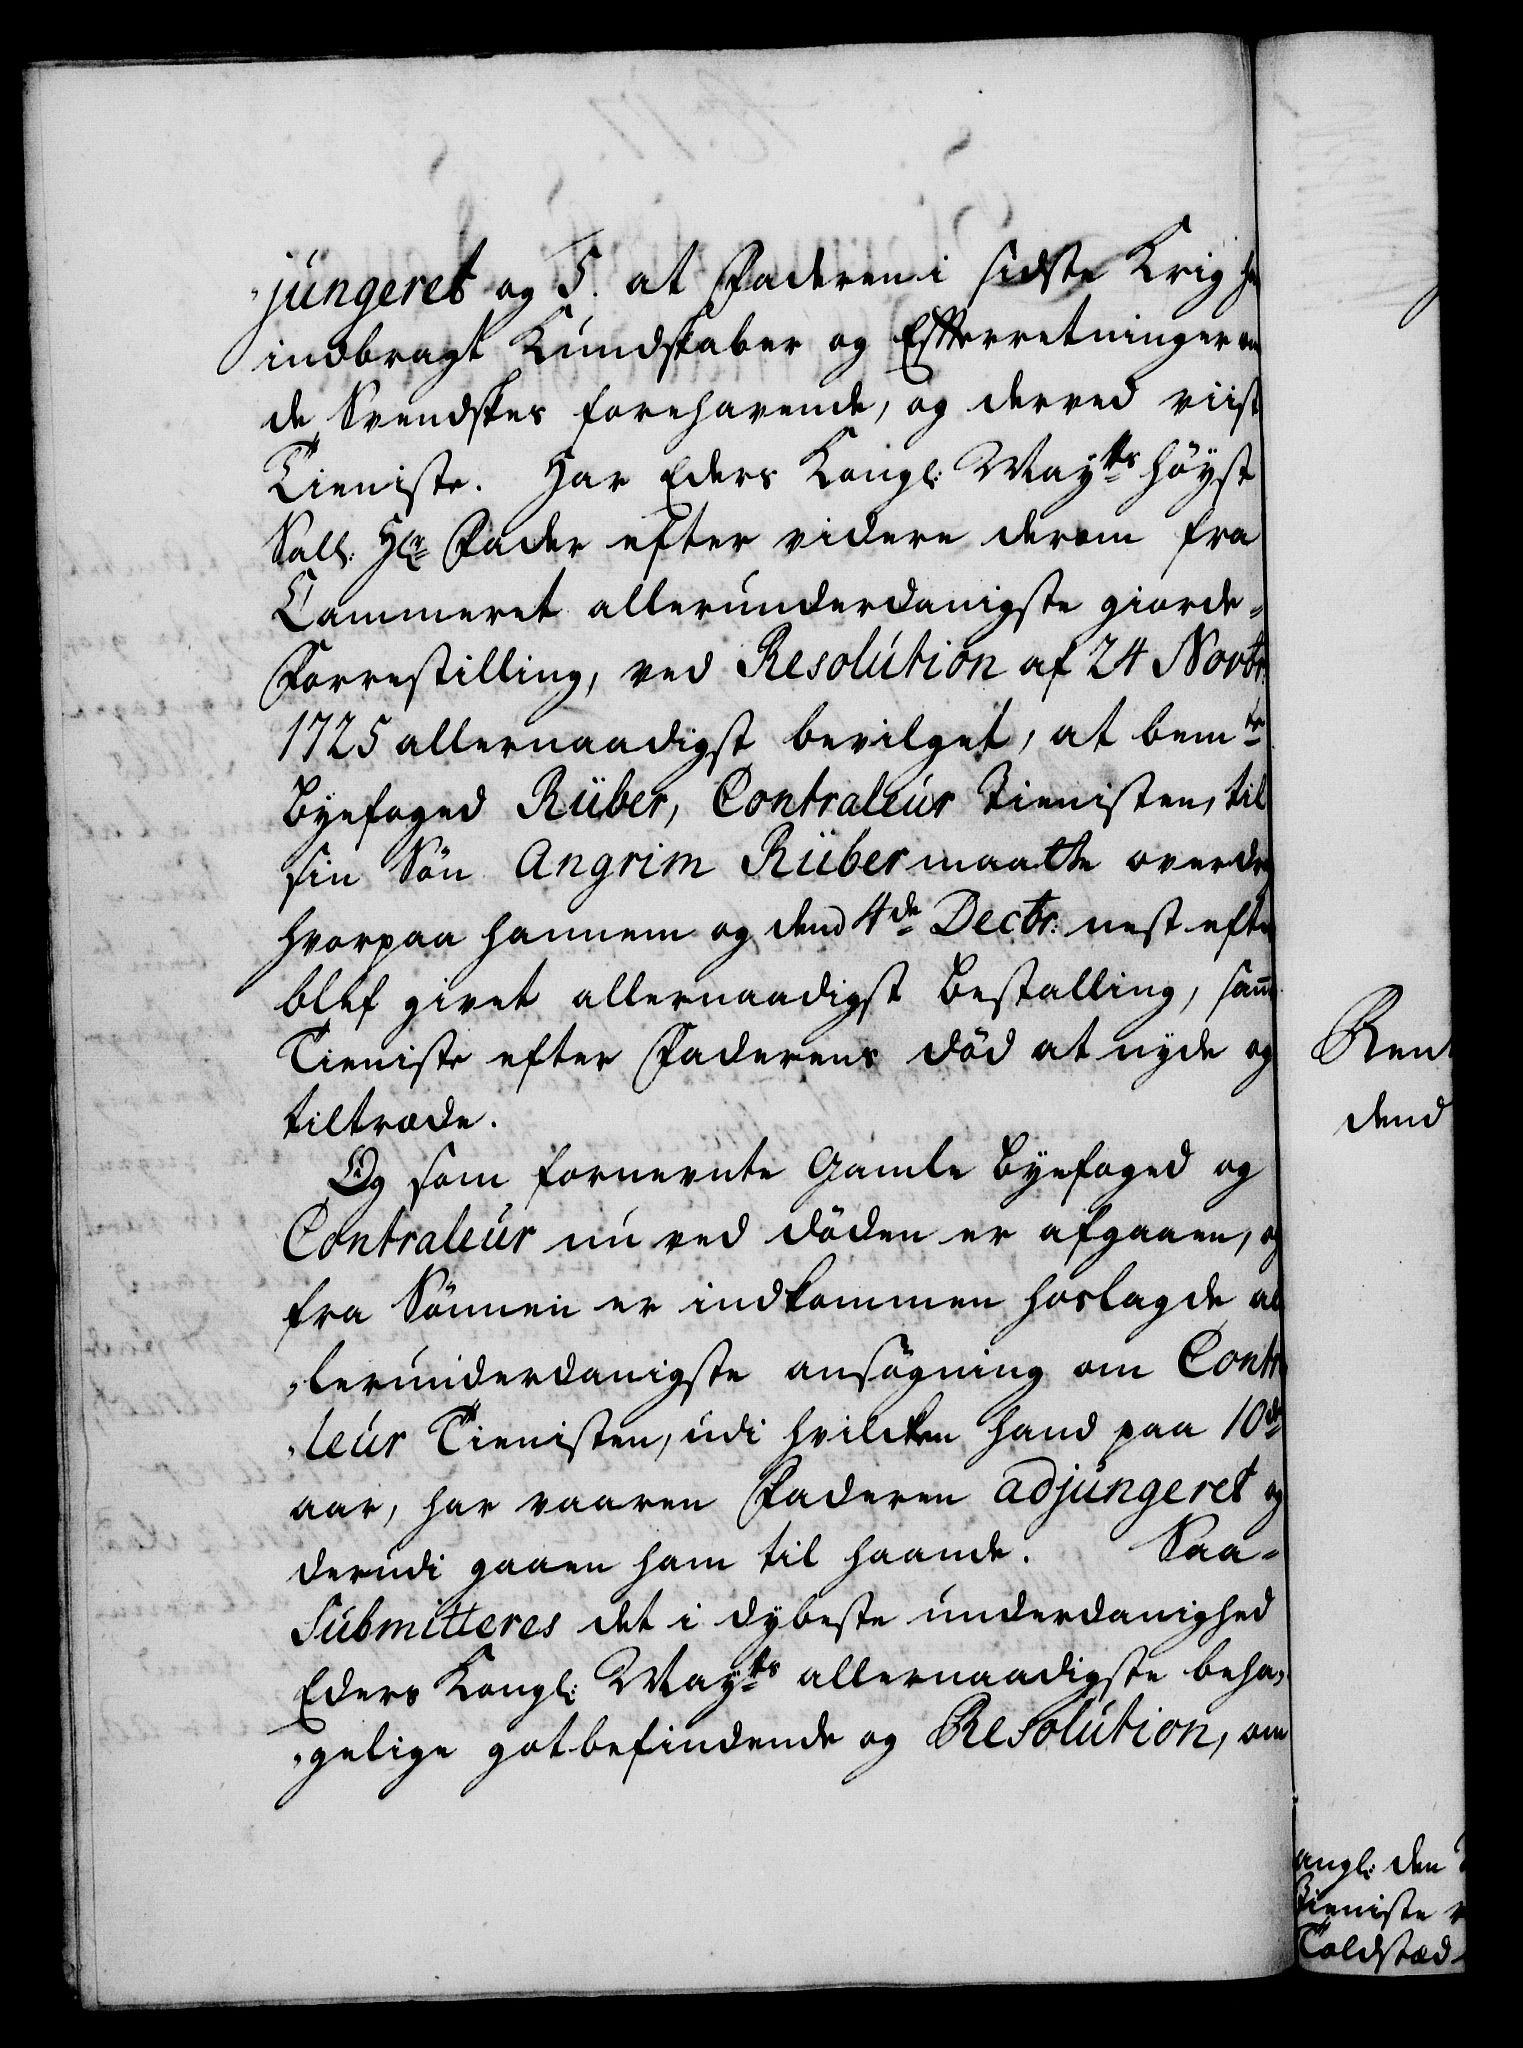 „jungeret og 5. at Faderen i sidste Krig
indbragt Kundskaber og Efterretninger om
de Svendskes forehavende, og derved viist
Tieniste. Har Eders Kongl: Maytts höyst
Sall: Hr Fader efter videre derom fra
Cammeret allerunderdanigste giorde-
Forrestilling, ved Resolution af 24 Novbr:
1725 allernaadigst bevilget, at bemte
Byefoged Rüber, Contraleur Tienisten, til
sin Sön Angrim Rüber maatte overdra
hvorpaa hannem og dend 4de Decbr: nest efter
blef givet allernaadigst Bestalling, samme
Tieniste efter Faderens död at nyde og
tiltræde.
Og som fornevnte Gamle Byefoged og
Contraleur nu ved döden er afgaaen, og
fra Sönnen er indkommen hoslagde al
„lerunderdanigste ansögning om Contra
„leur Tienisten, udi hvilcken hand paa 10de
aar, har vaaren Faderen adjungeret og
derudi gaaen ham til haande. Saa-
Submitteres det i dybeste underdanighed
Eders Kongl: Maytts allernaadigste beha„
„gelige gotbefindende og Resolution, om
Rent
dend
angl: den
Tieniste
Toldstæd